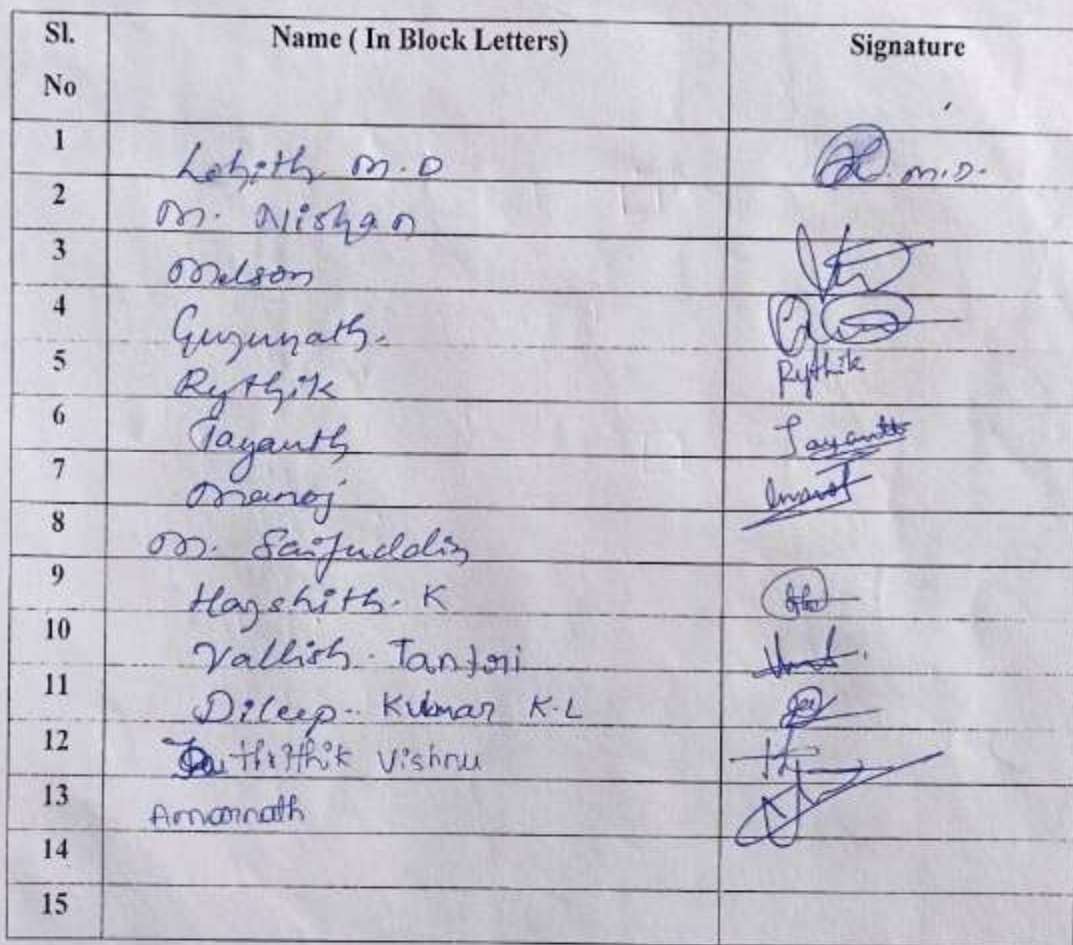 Sl. No Name ( In Block Letters) Signature
1 Lohith M.D M.D.
2 M. Nishan
3 Melson
4 Gurunath.
5 Rythik Rythik
6 Jayanth Jayanth
7 Manoj
8 M. Saifuddin
9 Harshith. K
10 Vallish. Tantri
11 Dileep. Kumar K.L
12 Thrithik Vishnu
13 Amarnath
14
15